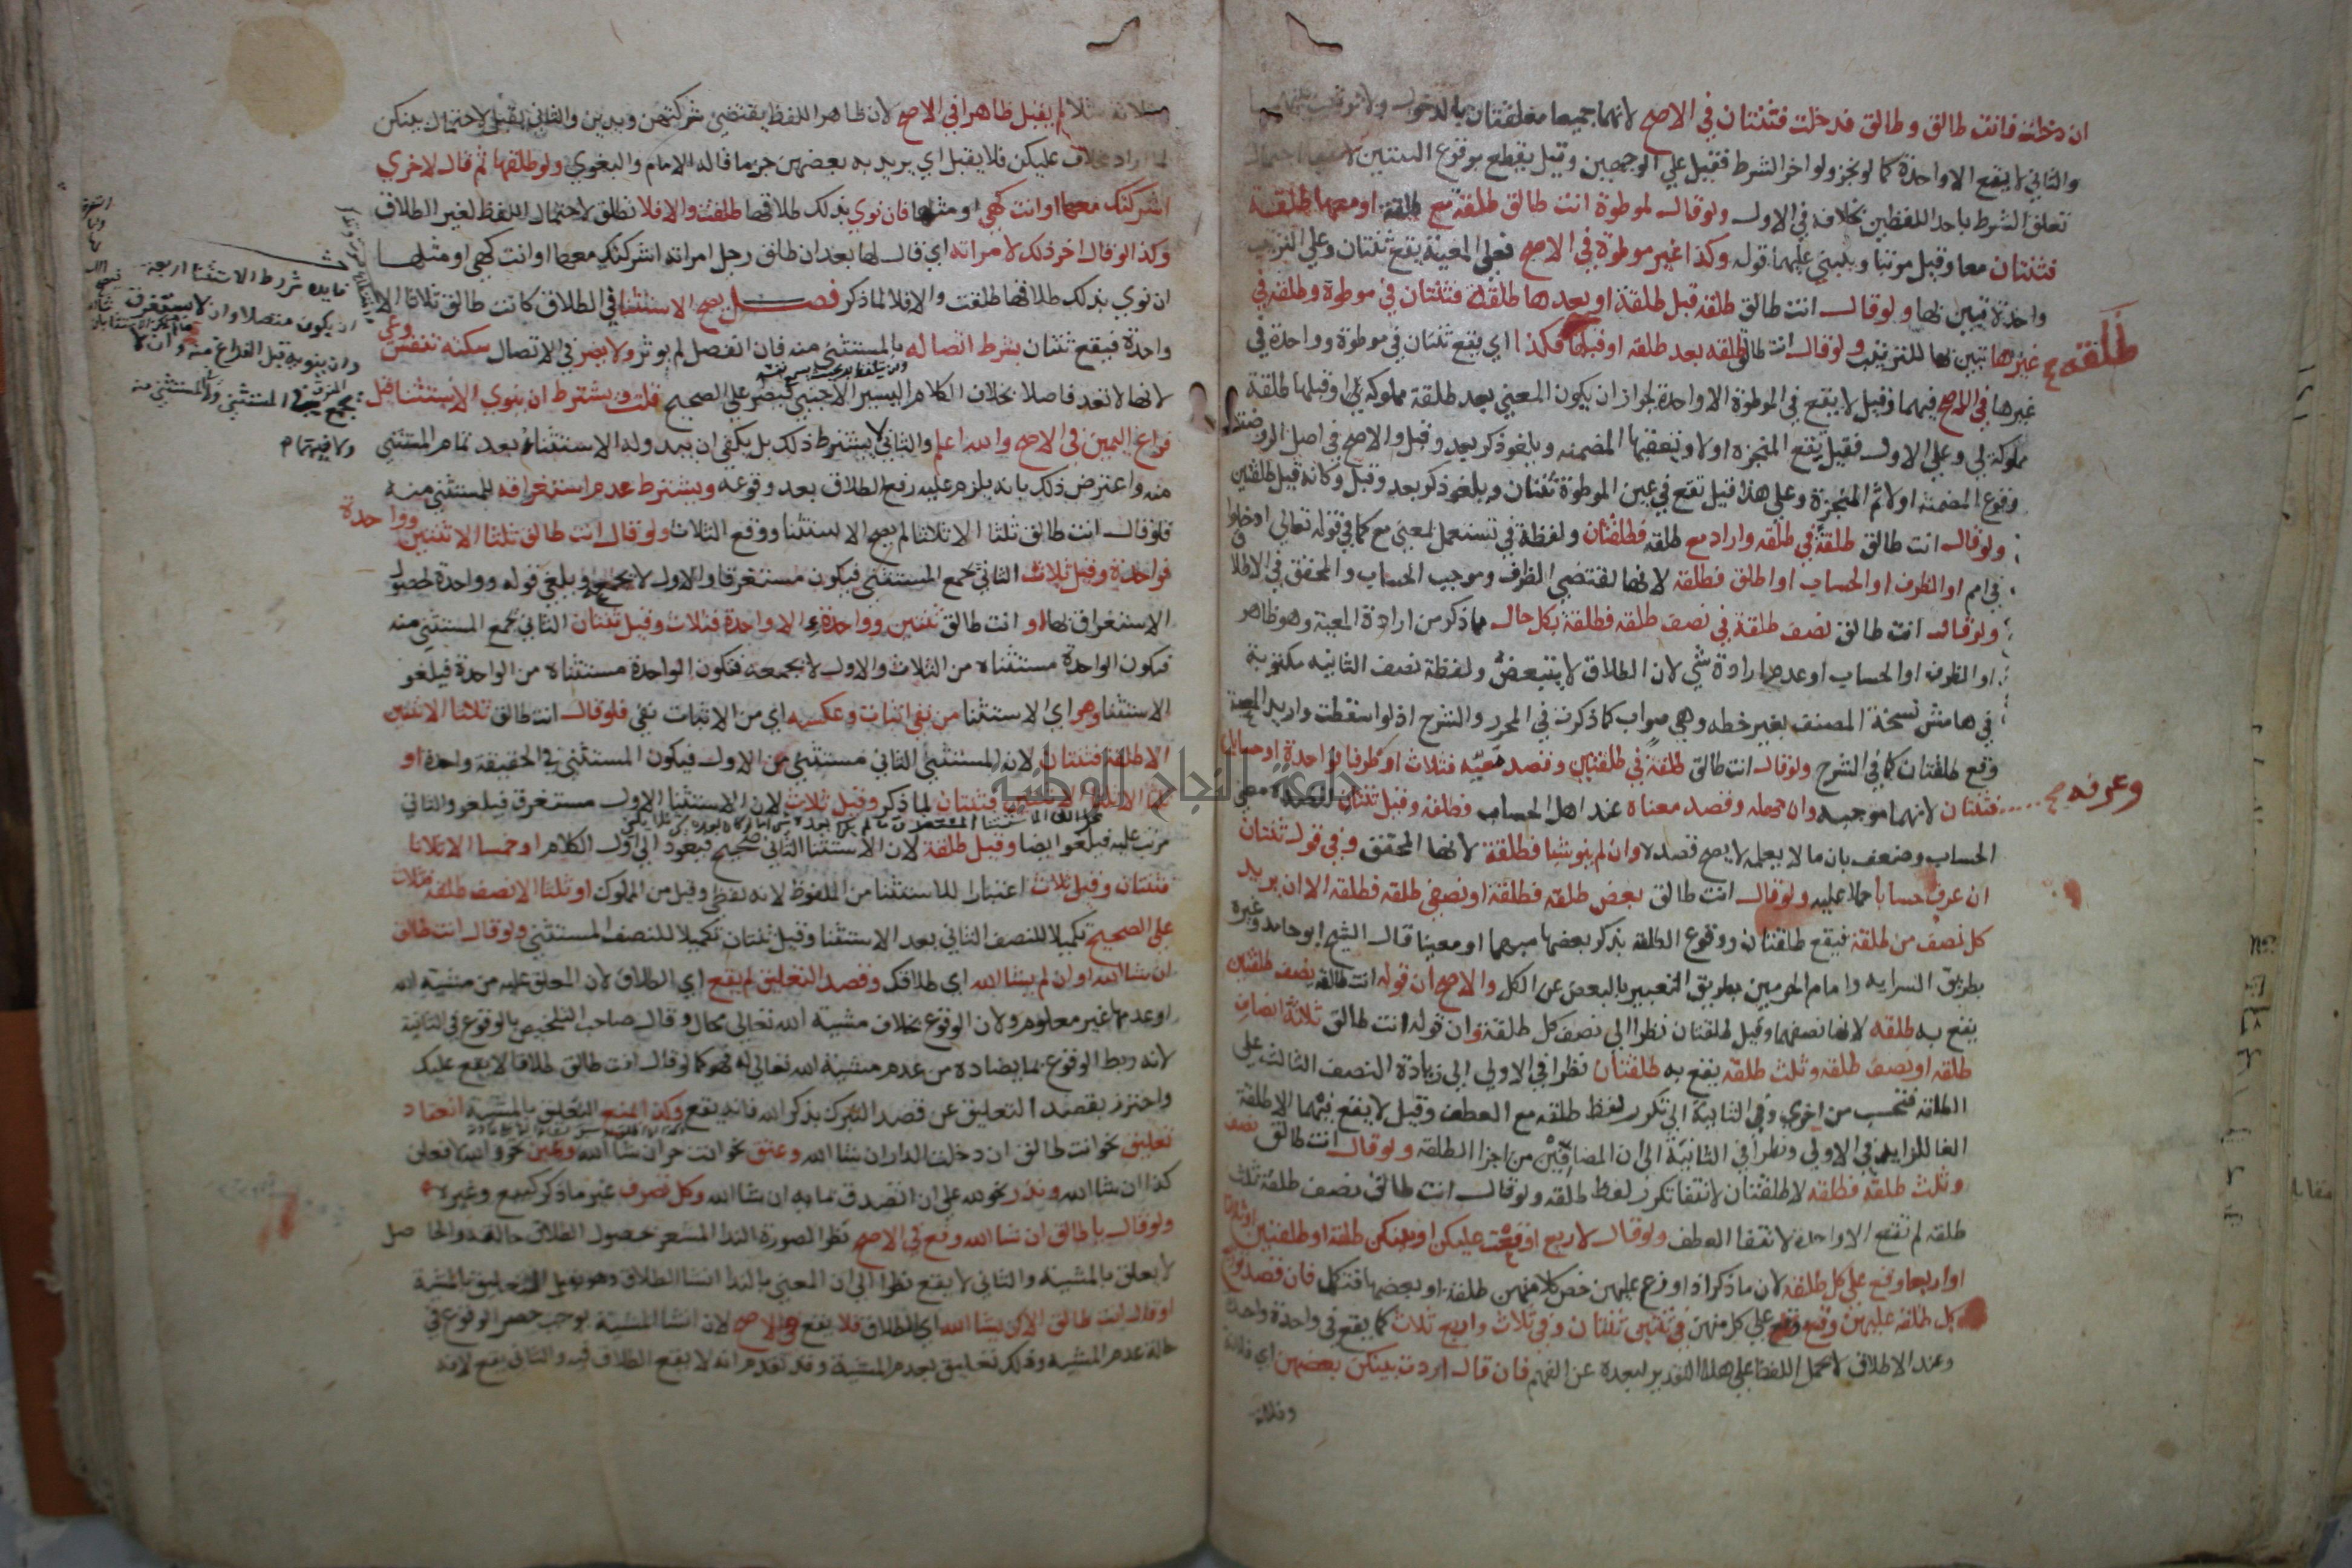 ان دخلت فانت طالق وطالق فدخلت فثنتان في الاصح لانهما جميعا معلقتان بالدخول
والثاني لا يقع الا واحدة كما لو نجز ولو اخر الشرط فقيل علي الوجهين وقيل يقطع بوقوع الثنتين
تعلق الشرط باحد اللفظين بخلافه في الاول ولو قال لموطوة انت طالق طلقة مع طلقة او معها طلقة
فثنتان معا وقيل مرتبا ويبني عليهما قوله وكذا غير موطوة في الاصح فعلي المعية يقع ثنتان وعلي الترتيب
واحدة تبين بها ولو قال انت طالق طلقة قبل طلقة او بعدها طلقة فثنتان في موطوة وطلقة في
طلقة
غيرها تبين بها للترتيب ولو قال انت طالق طلقه بعد طلقه او قبلها فكذا اي يقع ثنتان في موطوة وواحدة في
غيرها في الاصح فيهما وقيل لا يقع في الموطوة الا واحدة لجواز ان يكون المعني بعد طلقة مملوكه لي او قبلها طلقة
مملوكة لي وعلي الاول فقيل تقع المنجزه اولا وتتعقبها المضمنه ويلغو ذكر بعد وقبل والاصح في اصل الروضة
وقوع المضمنه اولا ثم المنجزة وعلي هذا قيل تقع في غير الموطوة ثنتان ويلغو ذكر بعد وقبل وكانه قيل طلقتين
ولو قال انت طالق طلقة في طلقه واراد مع طلقه فطلقتان ولفظة في تستعمل لمعني مع كما في قوله تعالي ادخلوا
في امم او الظرف او الحساب او اطلق فطلقة لانها لمقتضي الظرف وموجب الحساب والمحقق في الاطلا
ولو قال انت طالق نصف طلقة في نصف طلقه فطلقة بكل حال مما ذكر من ارادة المعية وهو ظاهر
او الظرف او الحساب او عدم ارادة شي لان الطلاق لا يتبعض ولفظة نصف الثانيه مكتوبة
في هامش نسخة المصنف بغير خطه وهي صواب كما ذكرت في المحرر والشرح اذ لو اسقطت واريد المعية
وقع طلقتان كما في الشرح ولو قال انت طالق طلقة في طلقتين وقصد معية فثلاث او ظرفا فواحدة او حسابا
وعرفه صح
فثنتان لانهما موجبه وان جهله وقصد معناه عند اهل الحساب فطلقه وقيل ثنتان لقصده معني
الحساب وضعف بان ما لا يعلمه لا يصح قصده وان لم ينو شيا فطلقة لانها المحقق وفي قول ثنتان
ان عرف حسابا حملا عليه ولو قال انت طالق بعض طلقه فطلقة او نصفي طلقه فطلقه الا ان يريد
كل نصف من طلقة فيقع طلقتان ووقوع الطلقه بذكر بعضها مبهما او معينا قال الشيخ ابو حامد وغيره
بطريق السرايه وامام الحرمين بطريق التعبير بالبعض عن الكل والاصح ان قوله انت طالق نصف طلقتين
يقع به طلقه لانها نصفهما وقيل طلقتان نظرا الي نصف كل طلقة وان قوله انت طالق ثلاثة انصاف
طلقه او نصف طلقه وثلث طلقه يقع به طلقتان نظرا في الاولي الي زيادة النصف الثالث علي
الطلقه فتحسب من اخري وفي الثانية الي تكرر لفظ طلقه مع العطف وقيل لا يقع فيهما الا طلقة
الغا للزايد في الاولي ونظرا في الثانية الي ان المضافين من اجزا الطلقه ولو قال انت طالق نصف
وثلث طلقه فطلقه لا طلقتان لانتفا تكرر لفظ طلقه ولو قال انت طالق نصف طلقه ثلث
طلقه لم تقع الا واحدة لانتفا العطف ولو قال لاربع اوقعت عليكن او بينكن طلقة او طلقتين او ثلاثا
او اربعا وقع علي كل طلقه لان ما ذكر اذا وزع عليهن خص كلا منهن طلقة او بعضها فتكمل فان قصد توزيع
كل طلقه عليهن وقع علي كل منهن في ثنتين ثنتان وفي ثلاث واربع ثلاث كما يقع في واحدة واحدة
وعند الاطلاق لا يحمل اللفظ علي هذا التقدير لبعده عن الفهم فان قال اردت ببينكن بعضهن اي فلانة
وفلانة
مثلا لم يقبل ظاهرا في الاصح لان ظاهر اللفظ يقتضي شركتهن ويدين والثاني يقبل لاحتمال بينكن
لما اراد بخلاف عليكن فلا يقبل اي يريد به بعضهن جزما قاله الامام والبغوي ولو طلقها ثم قال لاخري
اشركتك معها او انت كهي او مثلها فان نوي بذلك طلاقها طلقت والا فلا تطلق لاحتمال اللفظ لغير الطلاق
وكذا لو قال اخر ذلك لامراته اي قال لها بعد ان طلق رجل امراته اشركتك معها او انت كهي او مثلها
ان نوي بذلك طلاقها طلقت والا فلا لما ذكر فصل يصح الاستثنا في الطلاق كانت طالق ثلاثا الا
واحدة فيقع ثنتان بشرط اتصاله بالمستثني منه فان انفصل لم يوثر ولا يضر في الاتصال سكتة تنفس وعي
لانها لا تعد فاصلا بخلاف الكلام اليسير الاجنبي فيضر علي الصحيح قلت ويشترط ان ينوي الاستثنا قبل
فراغ اليمين في الاصح والله اعلم والثاني لا يشترط ذلك بل يكفي ان يبدو له الاستثناء بعد تمام المستثني
منه واعترض ذلك بانه يلزم عليه رفع الطلاق بعد وقوعه ويشترط عدم استغراقه للمستثني منه
فلو قال انت طالق ثلثا الا ثلاثا لم يصح الاستثنا ووقع الثلاث ولو قال انت طالق ثلثا الا ثنتين وواحدة
فواحدة وقيل ثلاث الثاني يجمع المستثني فيكون مستغرقا والاول لا يجمع ويلغي قوله وواحدة لحصول
الاستغراق بها او انت طالق ثنتين وواحدة الا واحدة فثلاث وقيل ثنتان الثاني يجمع المستثني منه
فيكون الواحدة مستثناه من الثلاث والاول لا يجمعه فتكون الواحدة مستثناه من الواحدة فيلغو
الاستثنا وهو اي الاستثنا من نفي اثبات وعكسه اي من الاثبات نفي فلو قال انت طالق ثلاثا الا ثنتين
الا طلقة فثنتان لان المستثني الثاني مستثني من الاول فيكون المستثني في الحقيقة واحدة او
ثلاثا الا ثلاثا الا ثنتين فثنتان لما ذكر وقيل ثلاث لان الاستثنا الاول مستغرق فيلغو والثاني
مرتب عليه فيلغو ايضا وقيل طلقة لان الاستثنا الثاني صحيح فيعود الي اول الكلام او خمسا الا ثلاثا
فثنتان وقيل ثلاث اعتبارا للاستثنا من الملفوظ لانه لفظي وقيل من المملوك او ثلثا الا نصف طلقه فثلاث
علي الصحيح تكميلا للنصف الثاني بعد الاستثنا وقيل ثنتان تكميلا للنصف المستثني ولو قال انت طالق
ان شا الله او ان لم يشا الله اي طلاقك وقصد التعليق لم يقع اي الطلاق لان المعلق عليه من مشية الله
او عدمها غير معلوم ولان الوقوع بخلاف مشية الله تعالي محال وقال صاحب التلخيص بالوقوع في الثانية
لانه ربط الوقوع بما يضاده من عدم مشية الله تعالي له فهو كما لو قال انت طالق طلاقا لا يقع عليك
واحترز بقصد التعليق عن قصد التبرك بذكر الله فانه يقع وكذا يمنع التعليق بالمشية انعقاد
تعليق نحو انت طالق ان دخلت الدار ان شا الله وعتق نحو انت حر ان شا الله ويمين نحو والله لافعلن
كذا ان شا الله ونذر نحو لله علي ان اتصدق بمايه ان شا الله وكل تصرف غير ما ذكر كبيع وغيره
ولو قال يا طالق ان شا الله وقع في الاصح نظرا لصورة الندا المشعر حصول الطلاق حالته والحاصل
لا يعلق بالمشيه والثاني لا يقع نظرا الي ان المعني بالندا انشا الطلاق وهو يقبل التعليق بالمشية
او قال انت طالق الا ان يشا الله اي الطلاق فلا يقع في الاصح لان استثنا المشية يوجب حصر الوقوع في
حالة عدم المشية وذلك تعليق بعدم المشية وقد تقدم انه لا يقع الطلاق فيه والثاني يقع لانه
فايده شروط الاستثنا اربعة
ان يكون متصلا وان لا يستغرق
وان ينويه قبل الفراغ منه وان لا
يجمع المستثني ولا المستثني منه
جامعة النجاح الوطنية